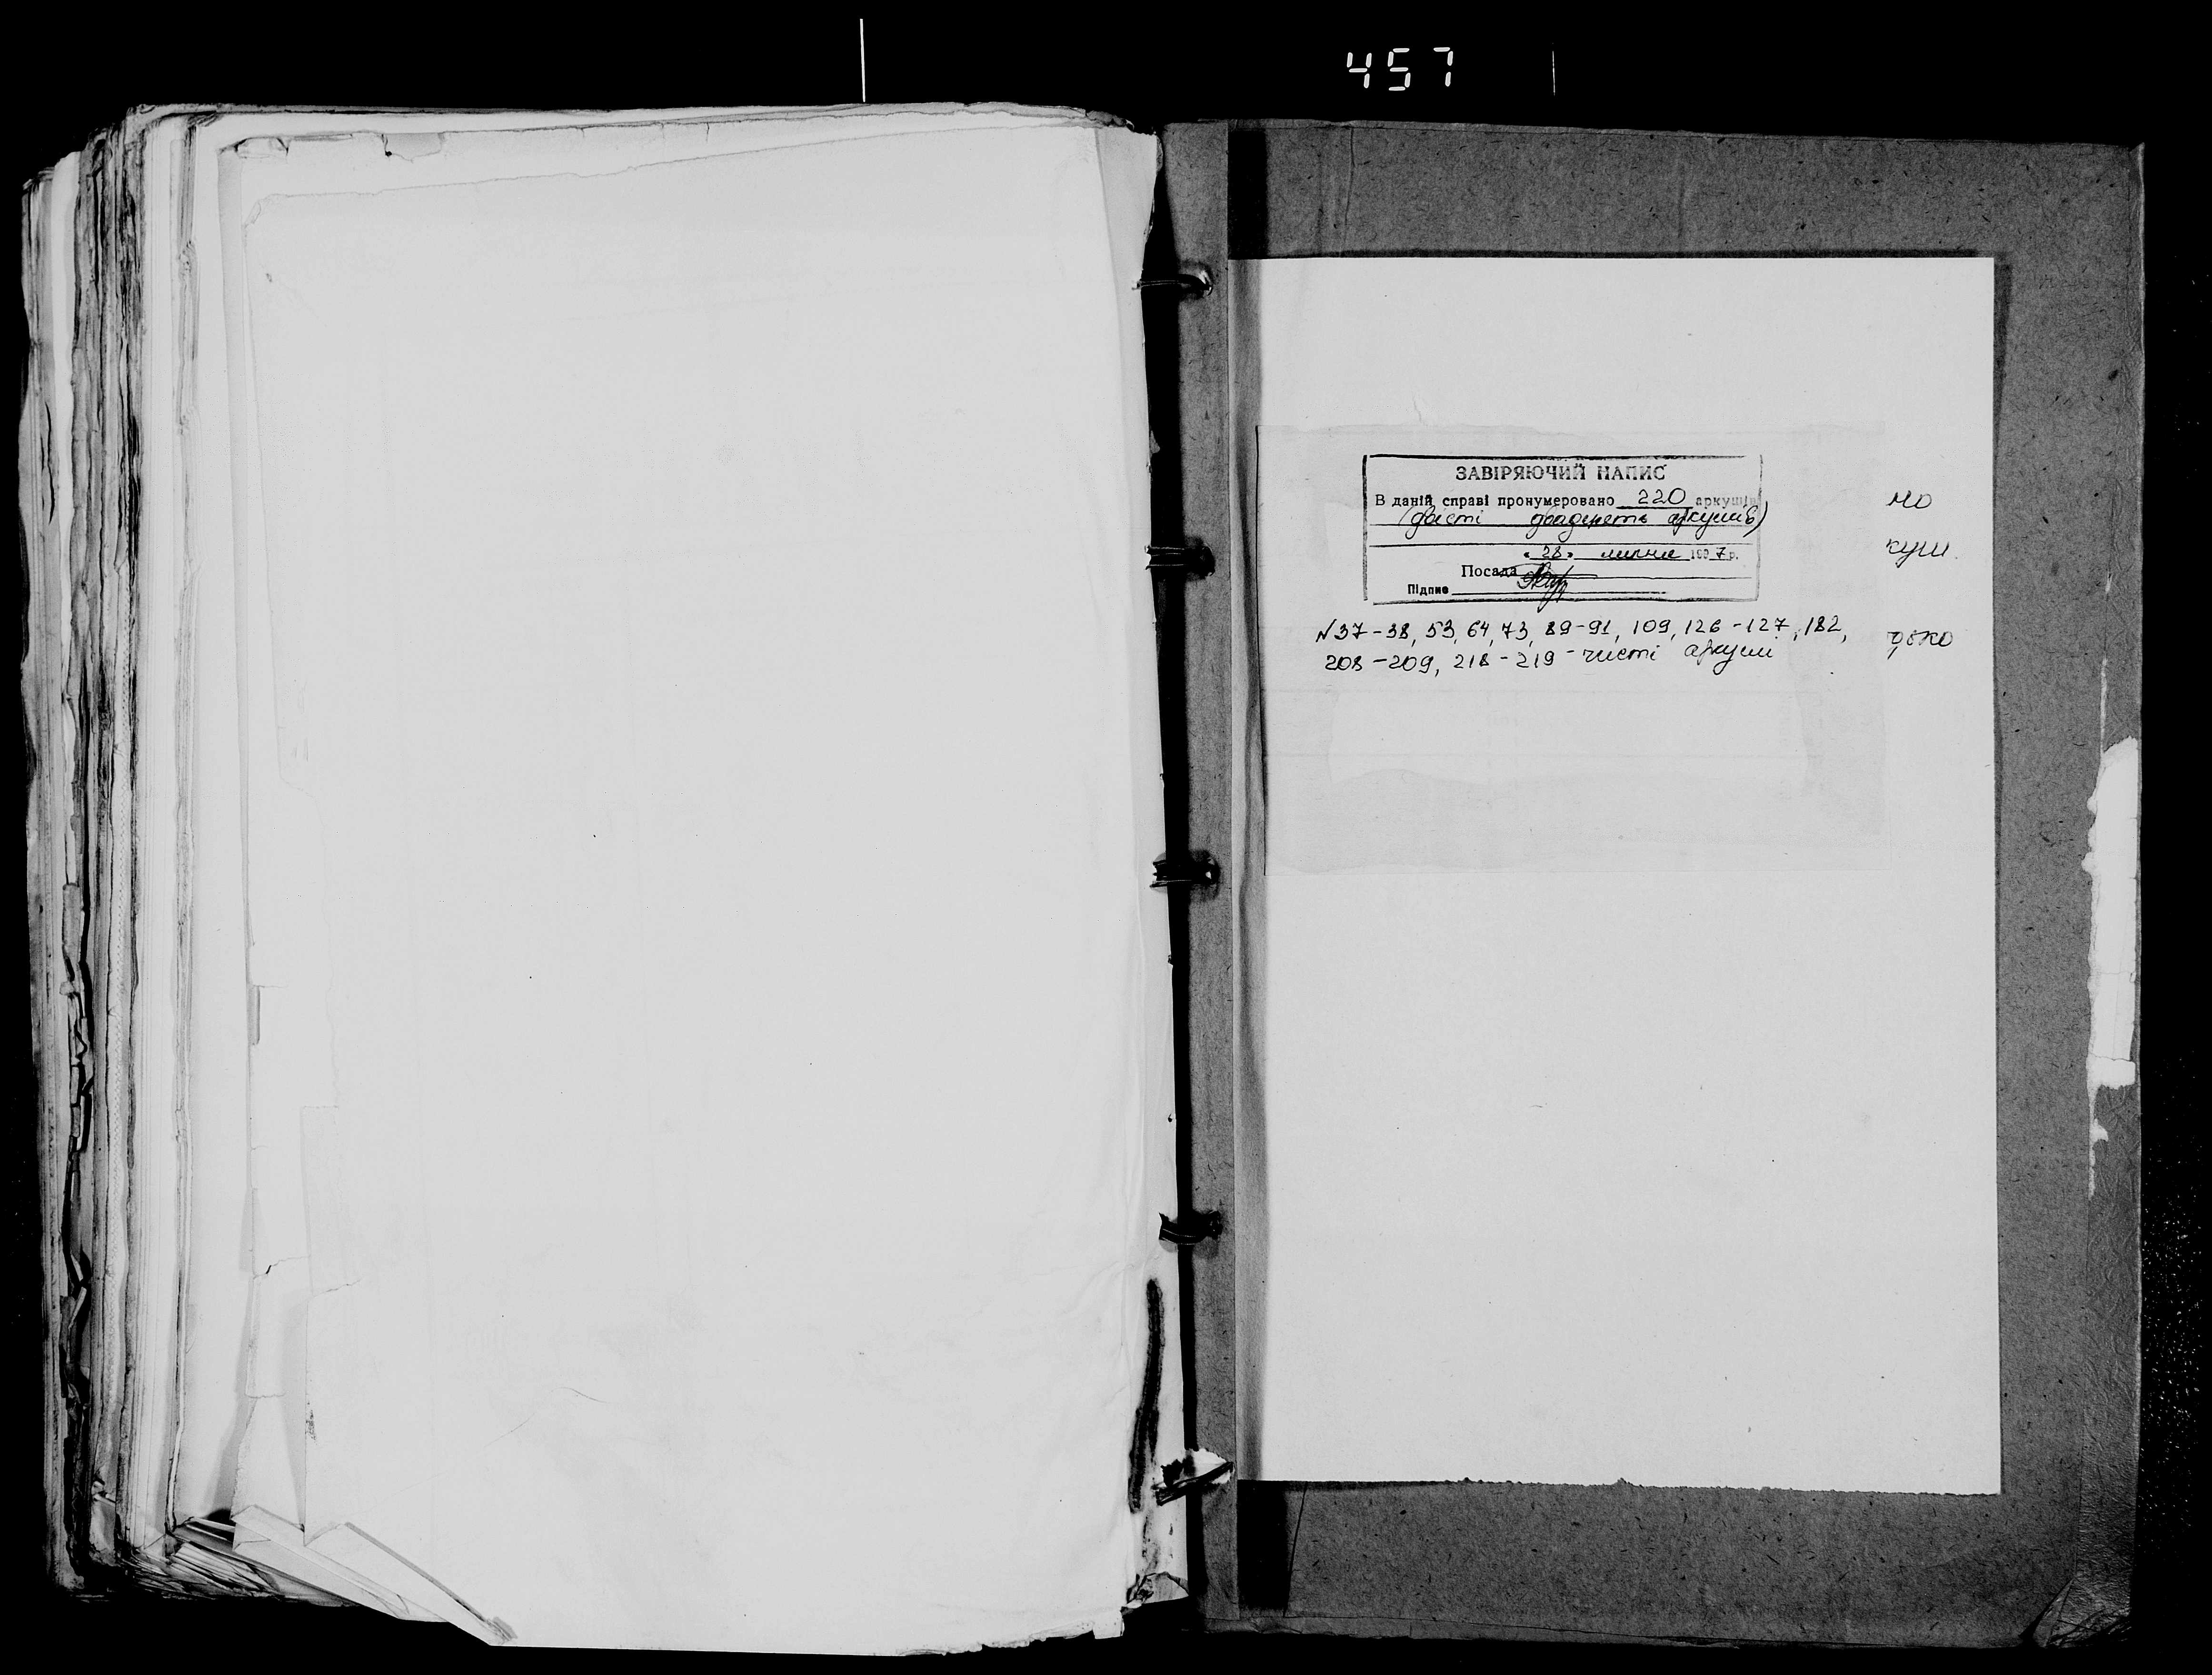 457
ЗАВІРЯЮЧИЙ НАПИС
В даній справі пронумеровано 220 аркушів
(двісті двадцять аркушів)
« 28 » липня 1997 р.
Посада
Підпис
№37-38, 53, 64, 73, 89-91, 109, 126-127, 182,
208-209, 218-219 - чисті аркуші
но
куш.